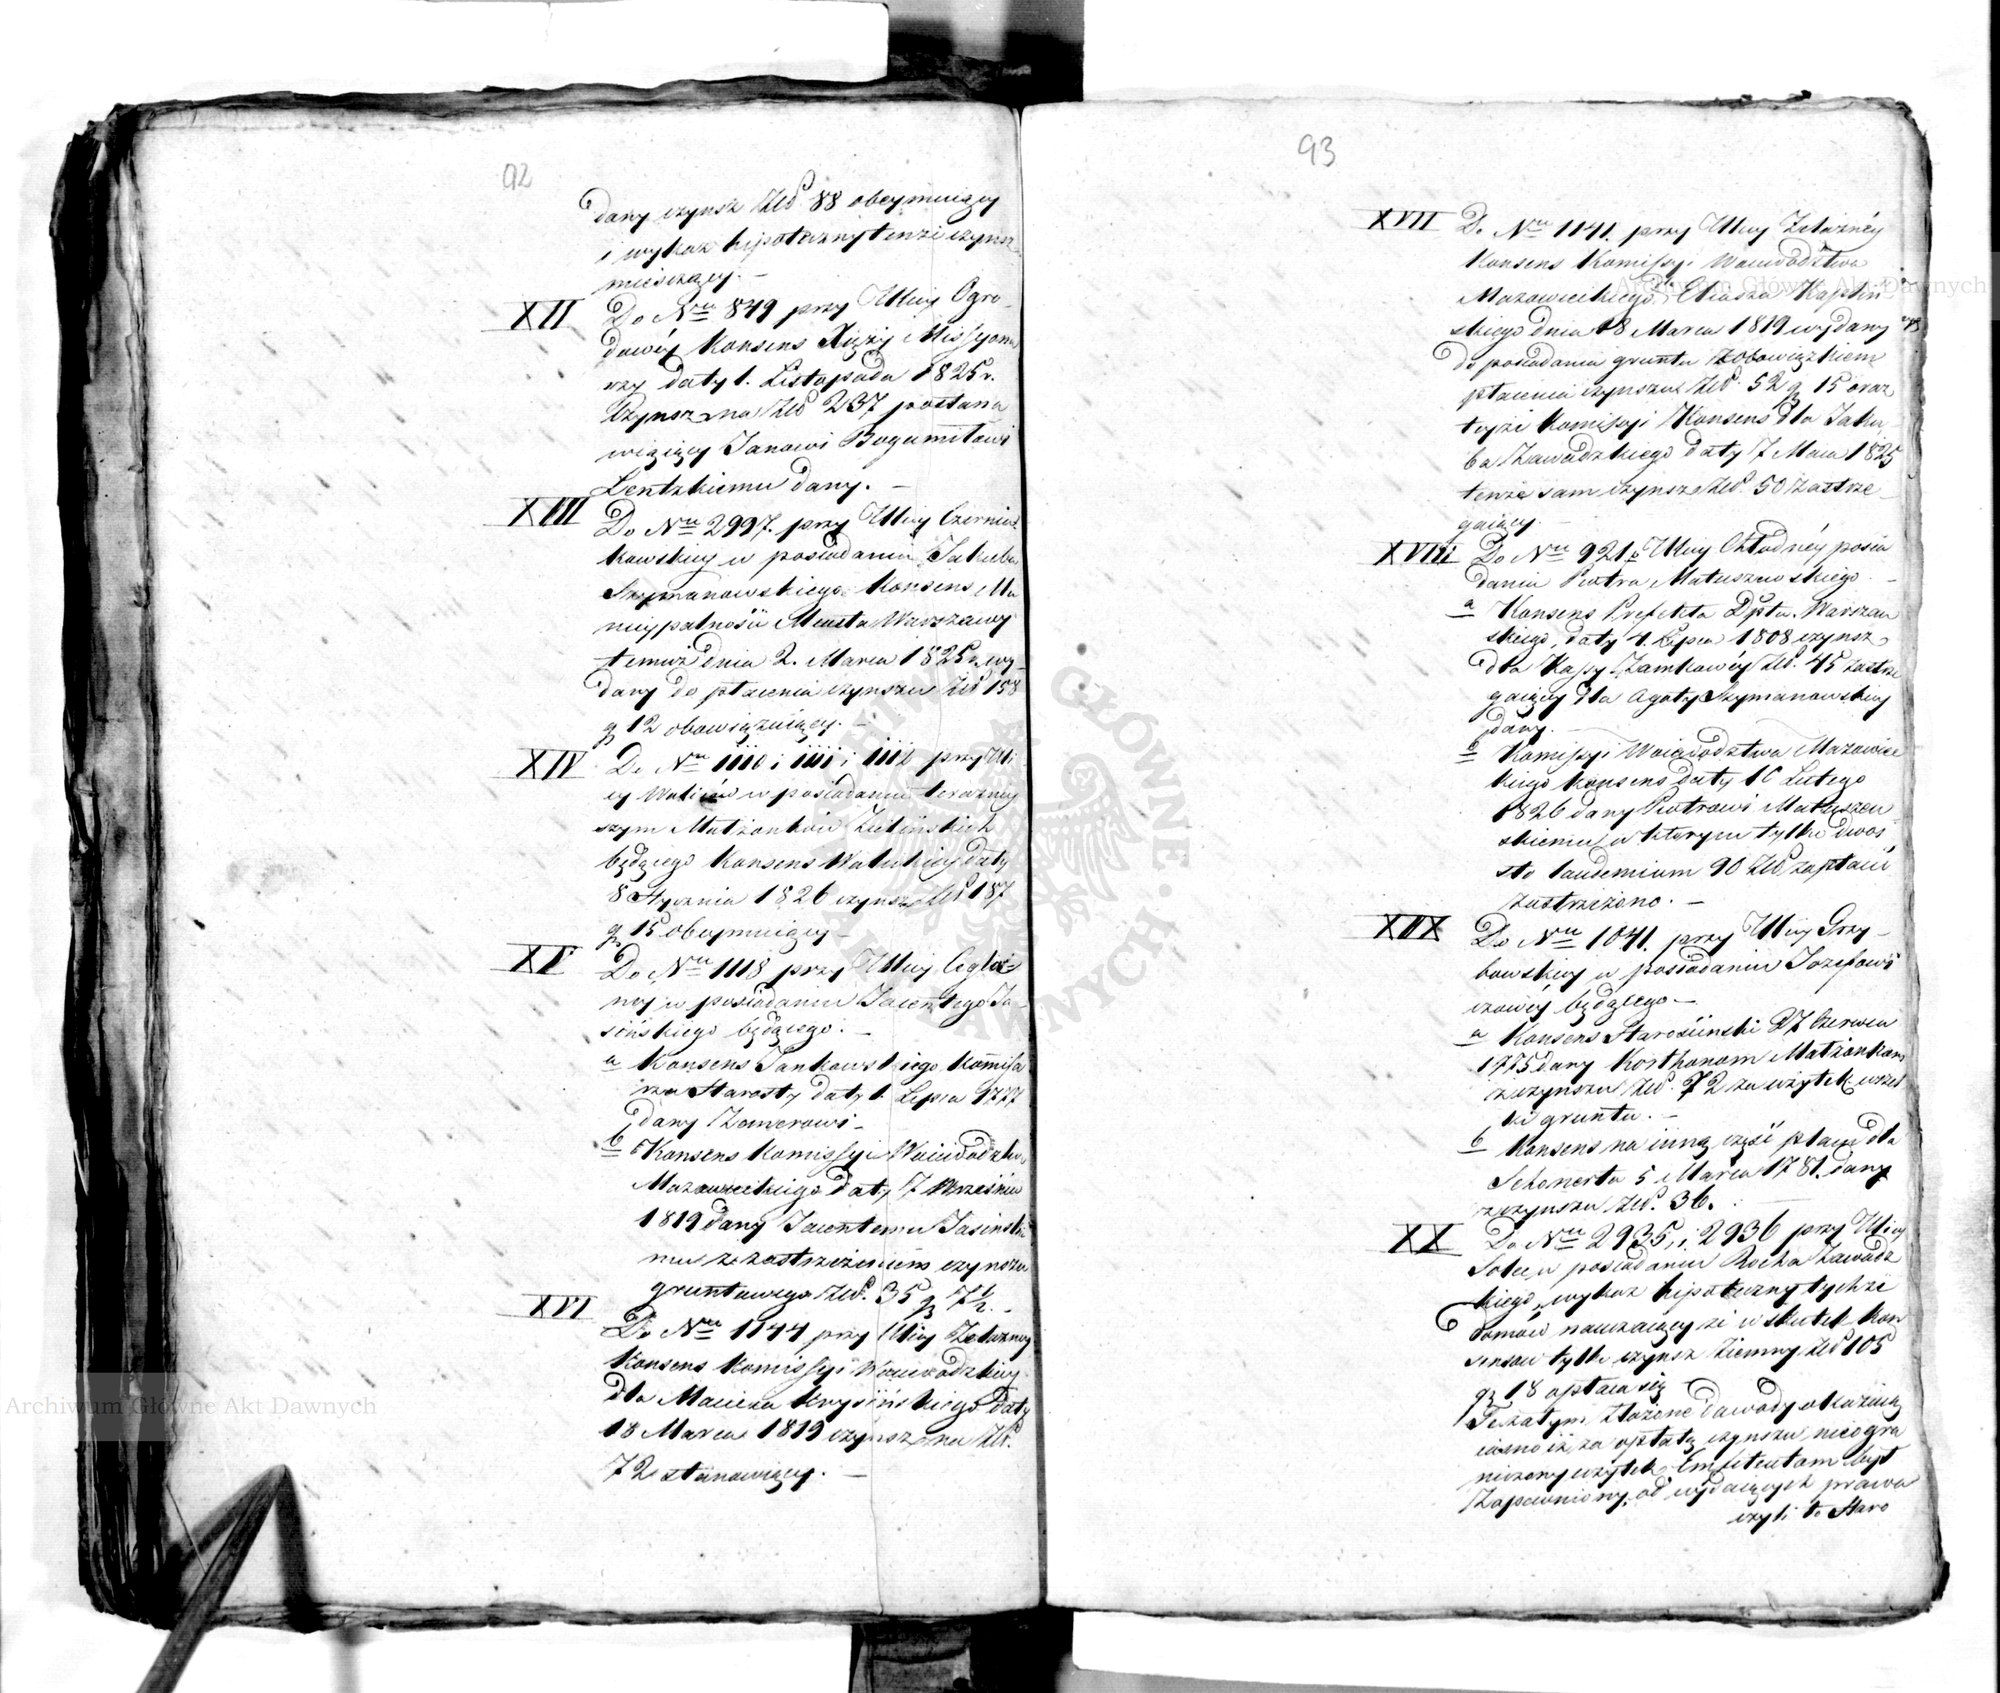 92
dany czynsz Złł 88 obeymuiący
i wykaz hipoteczny tenże czynsz
mieszczący. —
XII Do Nru 849 przy Ulicy Ogro-
dowéy Konsens Xięży Missyona
rzy daty 1. Listopada 1825 r.
Czynsz na Złł 237 postana
wiaiący Janowi Bogumiłowi
Lentzkiemu dany. —
XIII Do Nru 2997. przy Ulicy Czernia
kowskiey w posiadaniu Jakuba
Szymanowskiego, Konsens Mu
nicypalności Miasta Warszawy
temuż dnia 2. Marca 1825 r. wy
dany do płacenia czynszu Złł 158
g 12 obowiązuiący. —
XIV Do Nru 1110 i 1111 i 1112 przy Uli
cy Waliców w posiadaniu teraźniey
szym Małżonków Zielińskich
będącego Konsens Walickiey daty
8 Stycznia 1826 czynsz Złł 187
g 15 obeymuiący —
XV Do Nru 1118 przy Ulicy Cegla-
ney w posiadaniu Jacentego Ja-
sińskiego będącego. —
a Konsens Jankowskiego Komissa
rza Starosty daty 1. Lipca 1777
dany Zomerowi —
b Konsens Komissyi Woiewództwa
Mazowieckiego daty 7 Września
1819 dany Jacentemu Jasińskie
mu z zastrzeżeniem czynszu
gruntowego Złł. 35 g 7½. —
XVI Do Nru 1144 przy Ulicy Żelazney
Konsens Komissyi Woiewódzkiey
dla Macieia Krysińskiego daty
18 Marca 1819 czynsz na Złł.
72 stanowiący. —
93
XVII Do Nru 1141. przy Ulicy Żelaznéy
Konsens Komissyi Woiewództwa
Mazowieckiego, Eliasza Kaplin
skiego dnia 18 Marca 1819 wydany
do posiadania gruntu z obowiązkiem
płacenia czynszu Złł. 52 g 15 oraz
teyże Komissyi Konsens dla Jaku
ba Zawadzkiego daty 7 Maia 1825
tenże sam czynsz Złł. 50 zastrze
gaiący. —
XVIII Do Nru 921 p. Ulicy Chłodnéy posia
dania Piotra Matuszewskiego. —
a Konsens Prefekta Dptu. Warszaw
skiego, daty 1. Lipca 1808 czynsz
dla Kassy Zamkowéy Złł. 45 zastrze
gaiący dla Agaty Szymanowskiey
dany. —
b Komissyi Woiewództwa Mazowiec
kiego konsens daty 10 Lutego
1826 dany Piotrowi Matuszew
skiemu, w którym tylko dwoi
sto laudemium 90 Złł zapłacić
zastrzeżono. —
XIX Do Nru 1041. przy Ulicy Grzy-
bowskiey w posiadaniu Józefowi
czowey będącego —
a Konsens Starościński 27 Czerwca
1775 dany Korthonom Małżonkom
z czynszu Złł. 72 za użytek wszel
ki gruntu. —
b Konsens na inną część placu dla
Schonerta 5 Marca 1781. dany
z czynszu Złł. 36.
XX Do Nru 2935, i 2936 przy Ulicy
Solec w posiadaniu Rocha Zawadz
kiego, wykaz hipoteczny tychże
domów nauczaiący że w skutek kon
sensów tylko czynsz ziemny Złł 105
g 18 opłaca się
Te zatym złożone dowody okazuią
iasno iż za opłatą czynszu nieogra
niczony użytek Emfiteutom był
zapewniony od wydaiących prawa
czyli to Staro